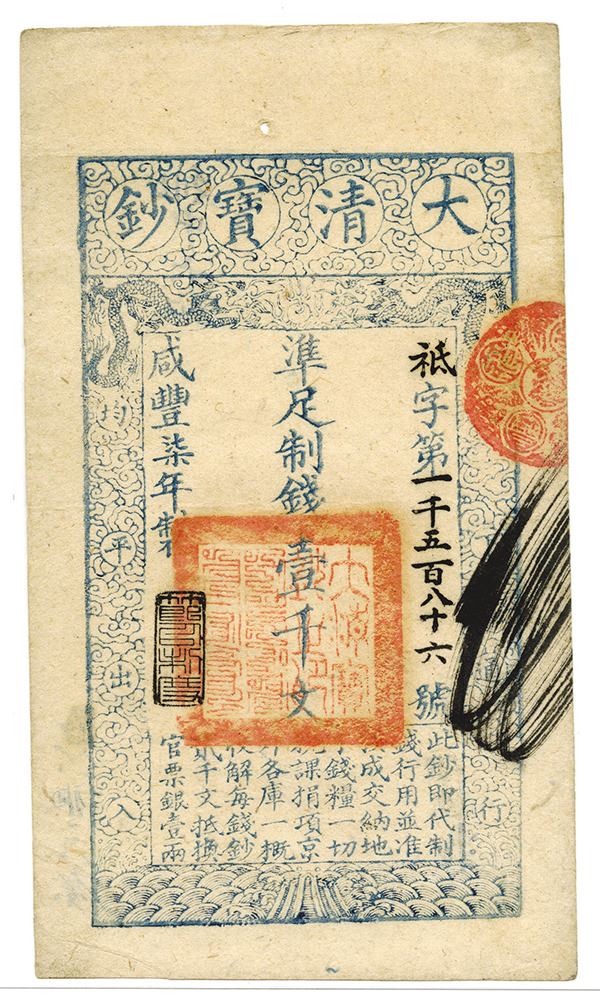 大清寶鈔
祗字第一千五百八十六號
準足制錢壹千文
咸豐柒年製
此鈔即代制
錢行用並准
成交納地
丁錢糧一切
稅課捐項京
外各庫一概
收解每錢鈔
貳千文抵換
官票銀壹兩
通行
均平出入